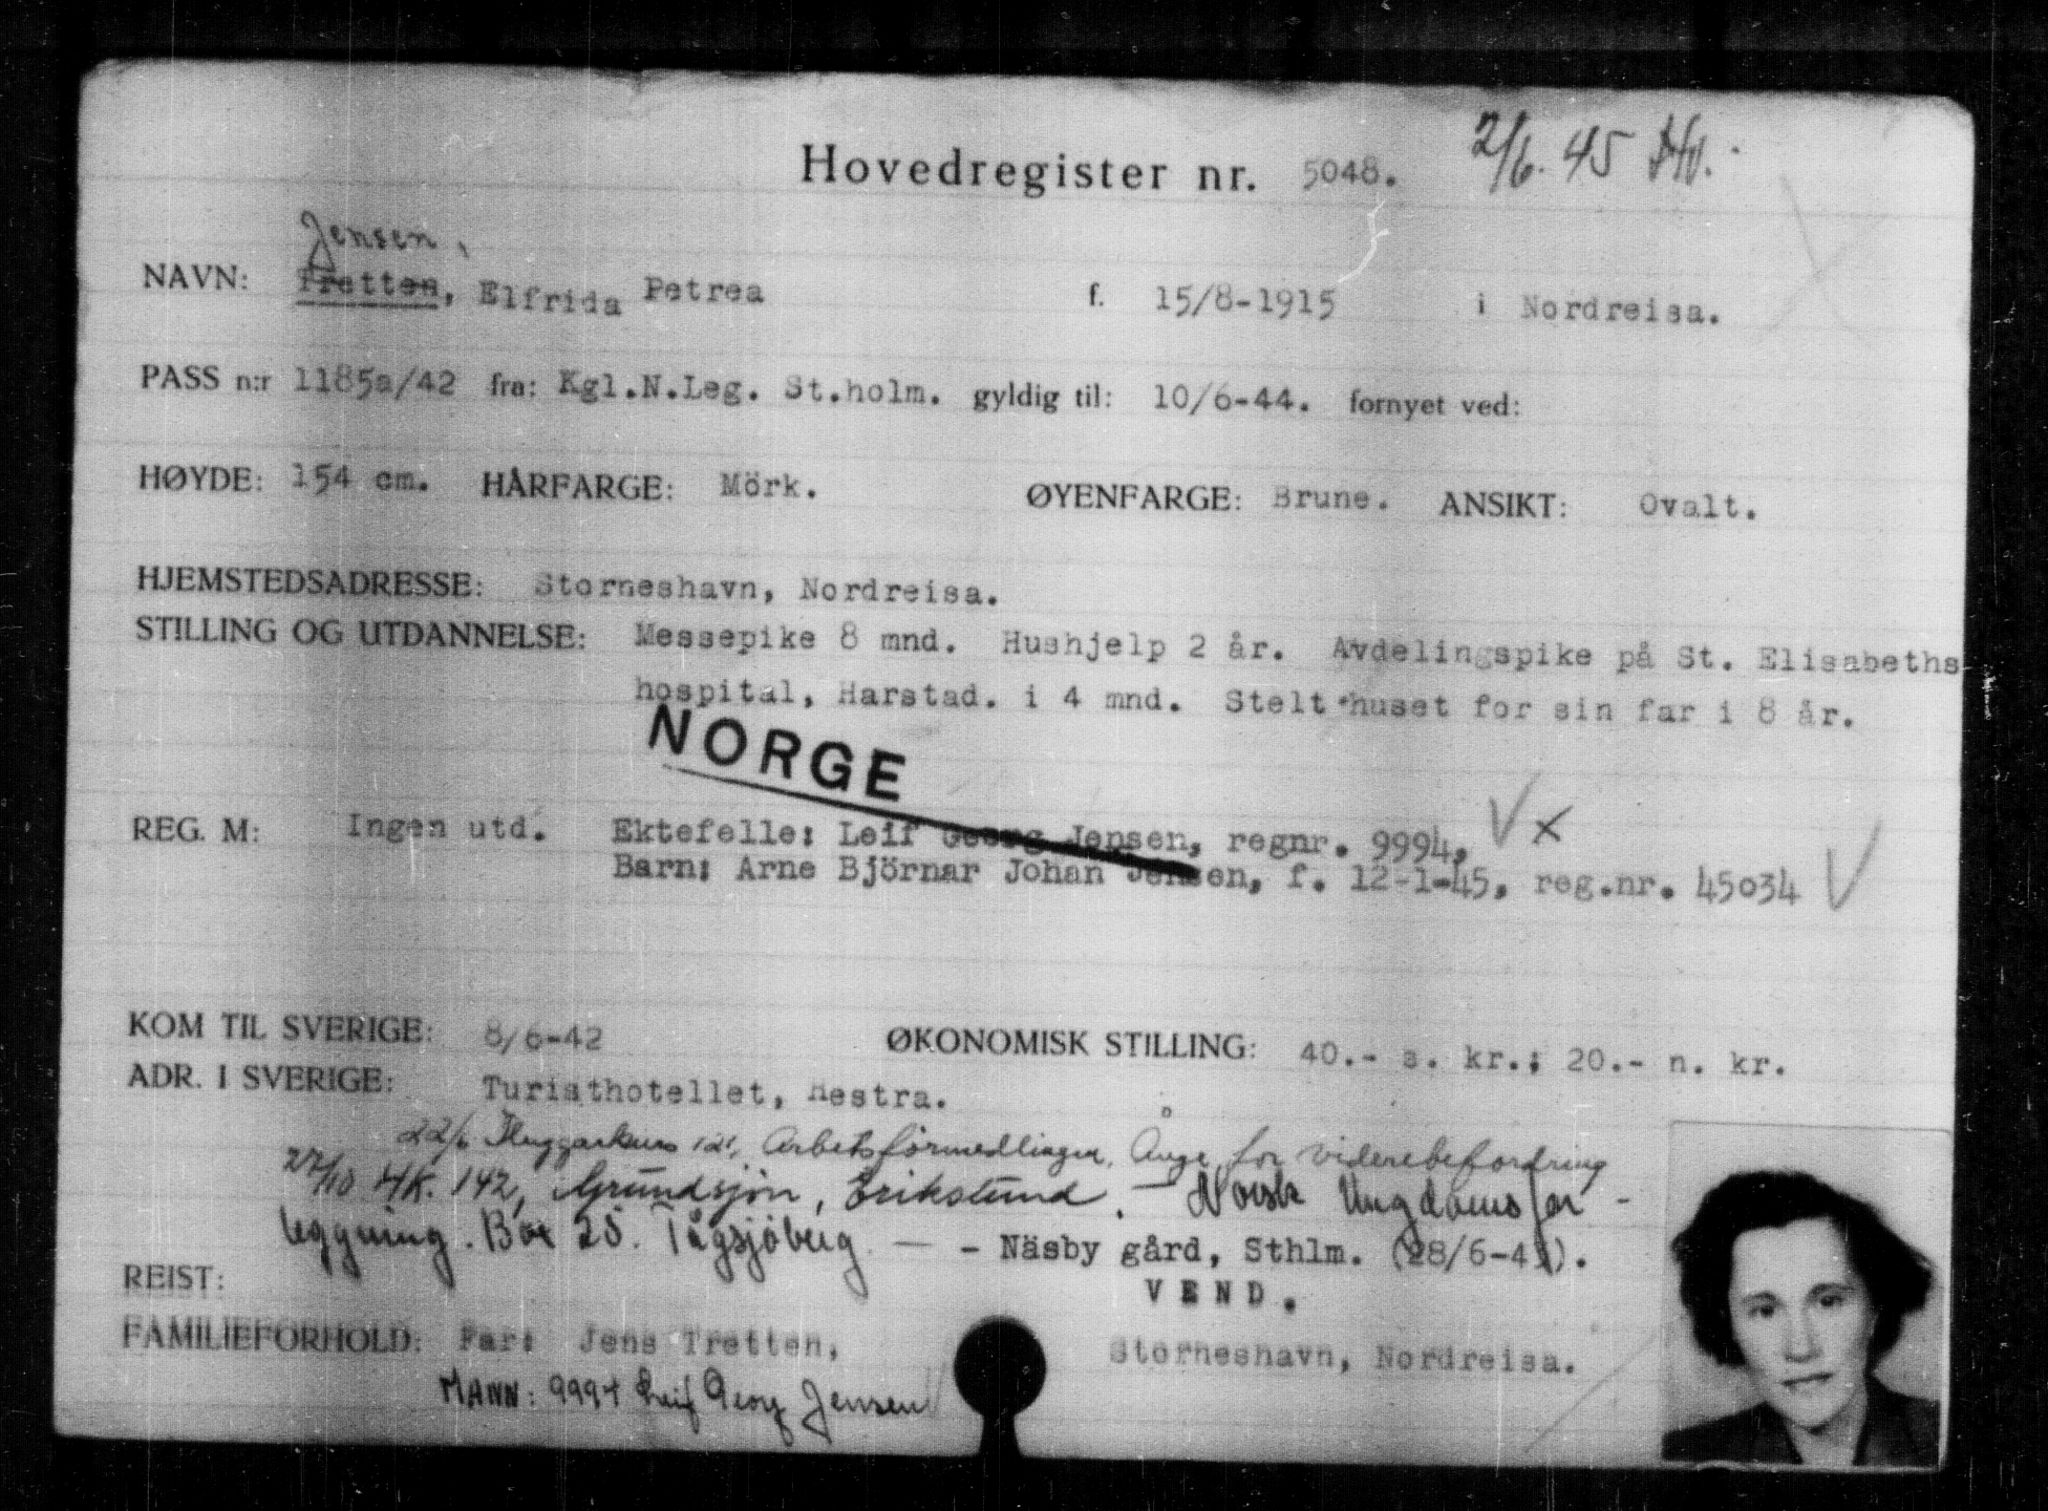 Hovedregister nr. 5048. 2/6. 45
Jensen,
NAVN: Tretten, Elfrida Petrea f. 15/8-1915 i Nordreisa.
PASS n:r 1185a/42 fra: Kgl.N.Leg. St.holm. gyldig til: 10/6-44. fornyet ved:
HØYDE: 154 cm. HÅRFARGE: Mörk. ØYENFARGE: Brune. ANSIKT: Ovalt.
HJEMSTEDSADRESSE: Storneshavn, Nordreisa.
STILLING OG UTDANNELSE: Messepike 8 mnd. Hushjelp 2 år. Avdelingspike på St. Elisabeths
hospital, Harstad. i 4 mnd. Stelt huset for sin far i 8 år.
NORGE
REG. M: Ingen utd. Ektefelle: Leif Georg Jensen, regnr. 9994,
Barn: Arne Björnar Johan Jensen, f. 12-1-45, reg.nr. 45034
KOM TIL SVERIGE: 8/6-42 ØKONOMISK STILLING: 40.- s. kr.; 20.- n. kr.
ADR. I SVERIGE: Turisthotellet, Hestra.
22/6 Huggarkurs 121, Arbetsförmedlingen, Ånge for viderebefordring
27/10 HK. 142, Grundsjön, Erikslund. - Norsk Ungdomsfor-
leggning. Box 25. Tågsjöberg. - - Näsby gård, Sthlm. (28/6-4).
VEND.
REIST:
FAMILIEFORHOLD: Far: Jens Tretten, Storneshavn, Nordreisa.
MANN: 9994 Leif Georg Jensen